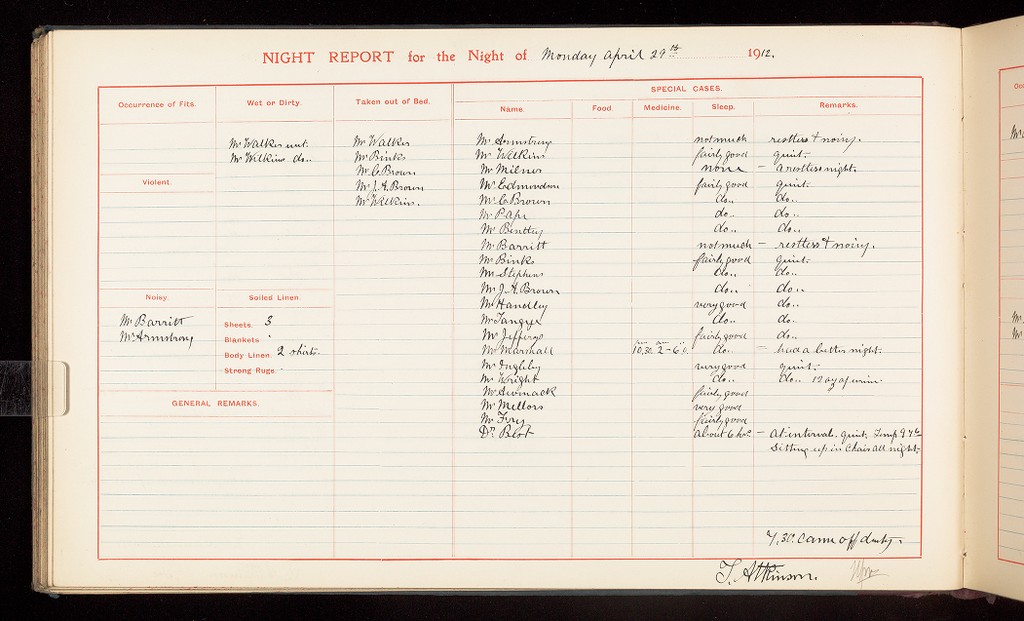 NIGHT REPORT for the Night of Monday April 29th 1912.
SPECIAL CASES.
Occurrence of Fits. Wet or Dirty. Taken out of Bed. Name. Food. Medicine. Sleep. Remarks.
Mr Walker wet.
Mr Wilkins do..
Mr Walker
Mr Binks
Mr C Brown
Mr J. A. Brown
Mr Wilkins.
Violent.
Noisy.
Mr Barritt
Mr Armstrong
Soiled Linen.
Sheets. 3
Blankets
Body Linen. 2 shirts.
Strong Rugs.
GENERAL REMARKS.
Mr Armstrong not much restless & noisy.
Mr Wilkins fairly good quiet.
Mr Milner none – a restless night.
Mr Edmondson fairly good quiet.
Mr C Brown do.. do..
Mr Pape do.. do..
Mr Bentley do.. do..
Mr Barritt not much – restless & noisy.
Mr Binks fairly good quiet.
Mr Stephens do.. do..
Mr J. A. Brown do.. do..
Mr Handley very good do..
Mr Tangye do.. do..
Mr Jefferys fairly good do..
Mr Marshall 10.30 2 - 6 do.. – had a better night.
Mr Ingleby very good quiet.
Mr Wright do.. do.. 12 oz of urine.
Mr fairly good
Mr Mellors very good
Mr Fry fairly good
Dr Best about 6 hrs. – At interval. quiet. Temp
Sitting up in Chair all night.
7.30. Came off duty.
T. Atkinson.